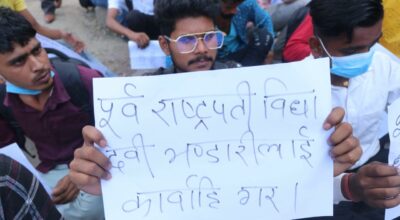 पूर्व राष्ट्रपती विद्या
देवी भण्डारीलाई
कार्वाहि गर।